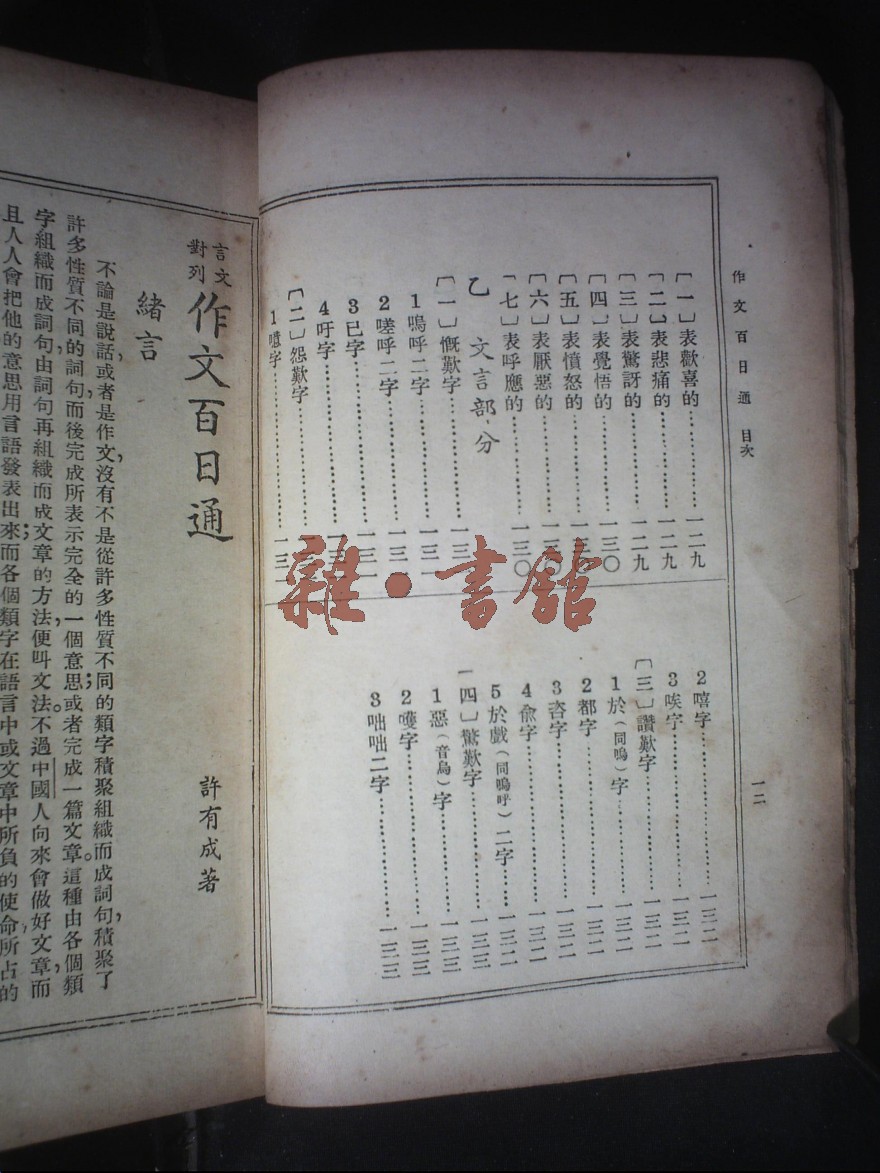 作文百日通 目次
一二
〔一〕表歡喜的……一二九
〔二〕表悲痛的……一二九
〔三〕表驚訝的……一二九
〔四〕表覺悟的……一三〇
〔五〕表憤怒的……一三〇
〔六〕表厭惡的……一三〇
〔七〕表呼應的……一三〇
乙 文言部分
〔一〕慨歎字……一三一
1嗚呼二字……一三一
2嗟呼二字……一三一
3已字……一三一
4吁字……一三一
〔二〕怨歎字
1噫字……一三一
2嘻字……一三二
3唉字……一三二
〔三〕讚歎字……一三二
1於(同嗚)字……一三二
2都字……一三二
3咨字……一三二
4俞字……一三二
5於戲(同嗚呼)二字……一三二
四〕驚歎字……一三三
1惡(音烏)字……一三三
2嚄字……一三三
3咄咄二字……一三三
雜·書館
言文對列 作文百日通
許有成著
緒言
不論是說話,或者是作文,沒有不是從許多性質不同的類字積聚組織而成詞句,積聚了
許多性質不同的詞句,而後完成所表示完全的一個意思;或者完成一篇文章。這種由各個類
字組織而成詞句,由詞句再組織而成文章的方法,便叫文法。不過中國人向來會做好文章,而
且人人會把他的意思用言語發表出來;而各個類字在語言中或文章中所負的使命,所占的